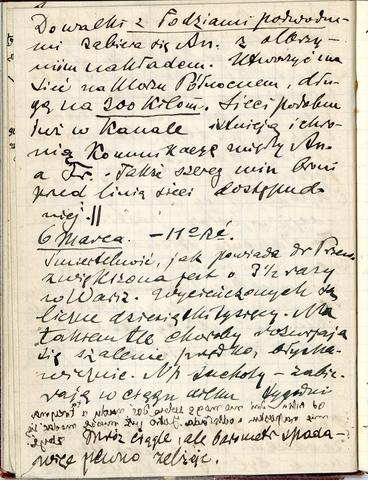 Do walki z łodziami podwodne-
mi zabiera się An. z olbrzy-
mim nakładem. Utworzyć ma
sieć na Morzu Północnem, dłu-
gą na 200 kilom. Sieci podobne
już w Kanale istnieją i chro-
nią komunikację między An.
a Fr. Także szereg min broni
przed linią sieci dostępu do
niej. ||
6 Marca. – 11° ré.
Śmiertelność, jak powiada dr
zwiększona jest o 3½ razy
w Warsz. Wycieńczonych są
liczne dziesiątki tysięcy. Na
takiem tle choroby rozwijają
się szalenie prędko, błyska-
wicznie. Np. suchoty – zabie-
rają w ciągu kilku tygodni
od kilku dni nie mam
nie
Mróz ciągle, ale barometr spada-
więc pewno zelżeje.